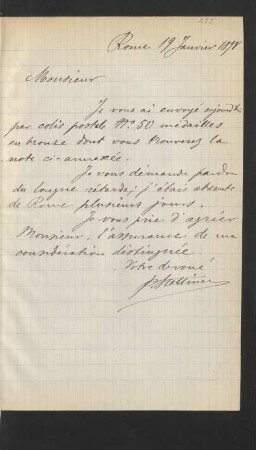 Rome 19 Janvier 1898
Monsieur
Je vous ai envoyé
par colis postals N.o 50 médailles
en bronze dont vous trouverez la
note ci-annexée.
Je vous demande pardon
du longue retarde; j'étais absente
de Rome plusieurs jours.
Je vous prie d'agréer
Monsieur, l'assurance de ma
considération distinguée.
Votre devoué